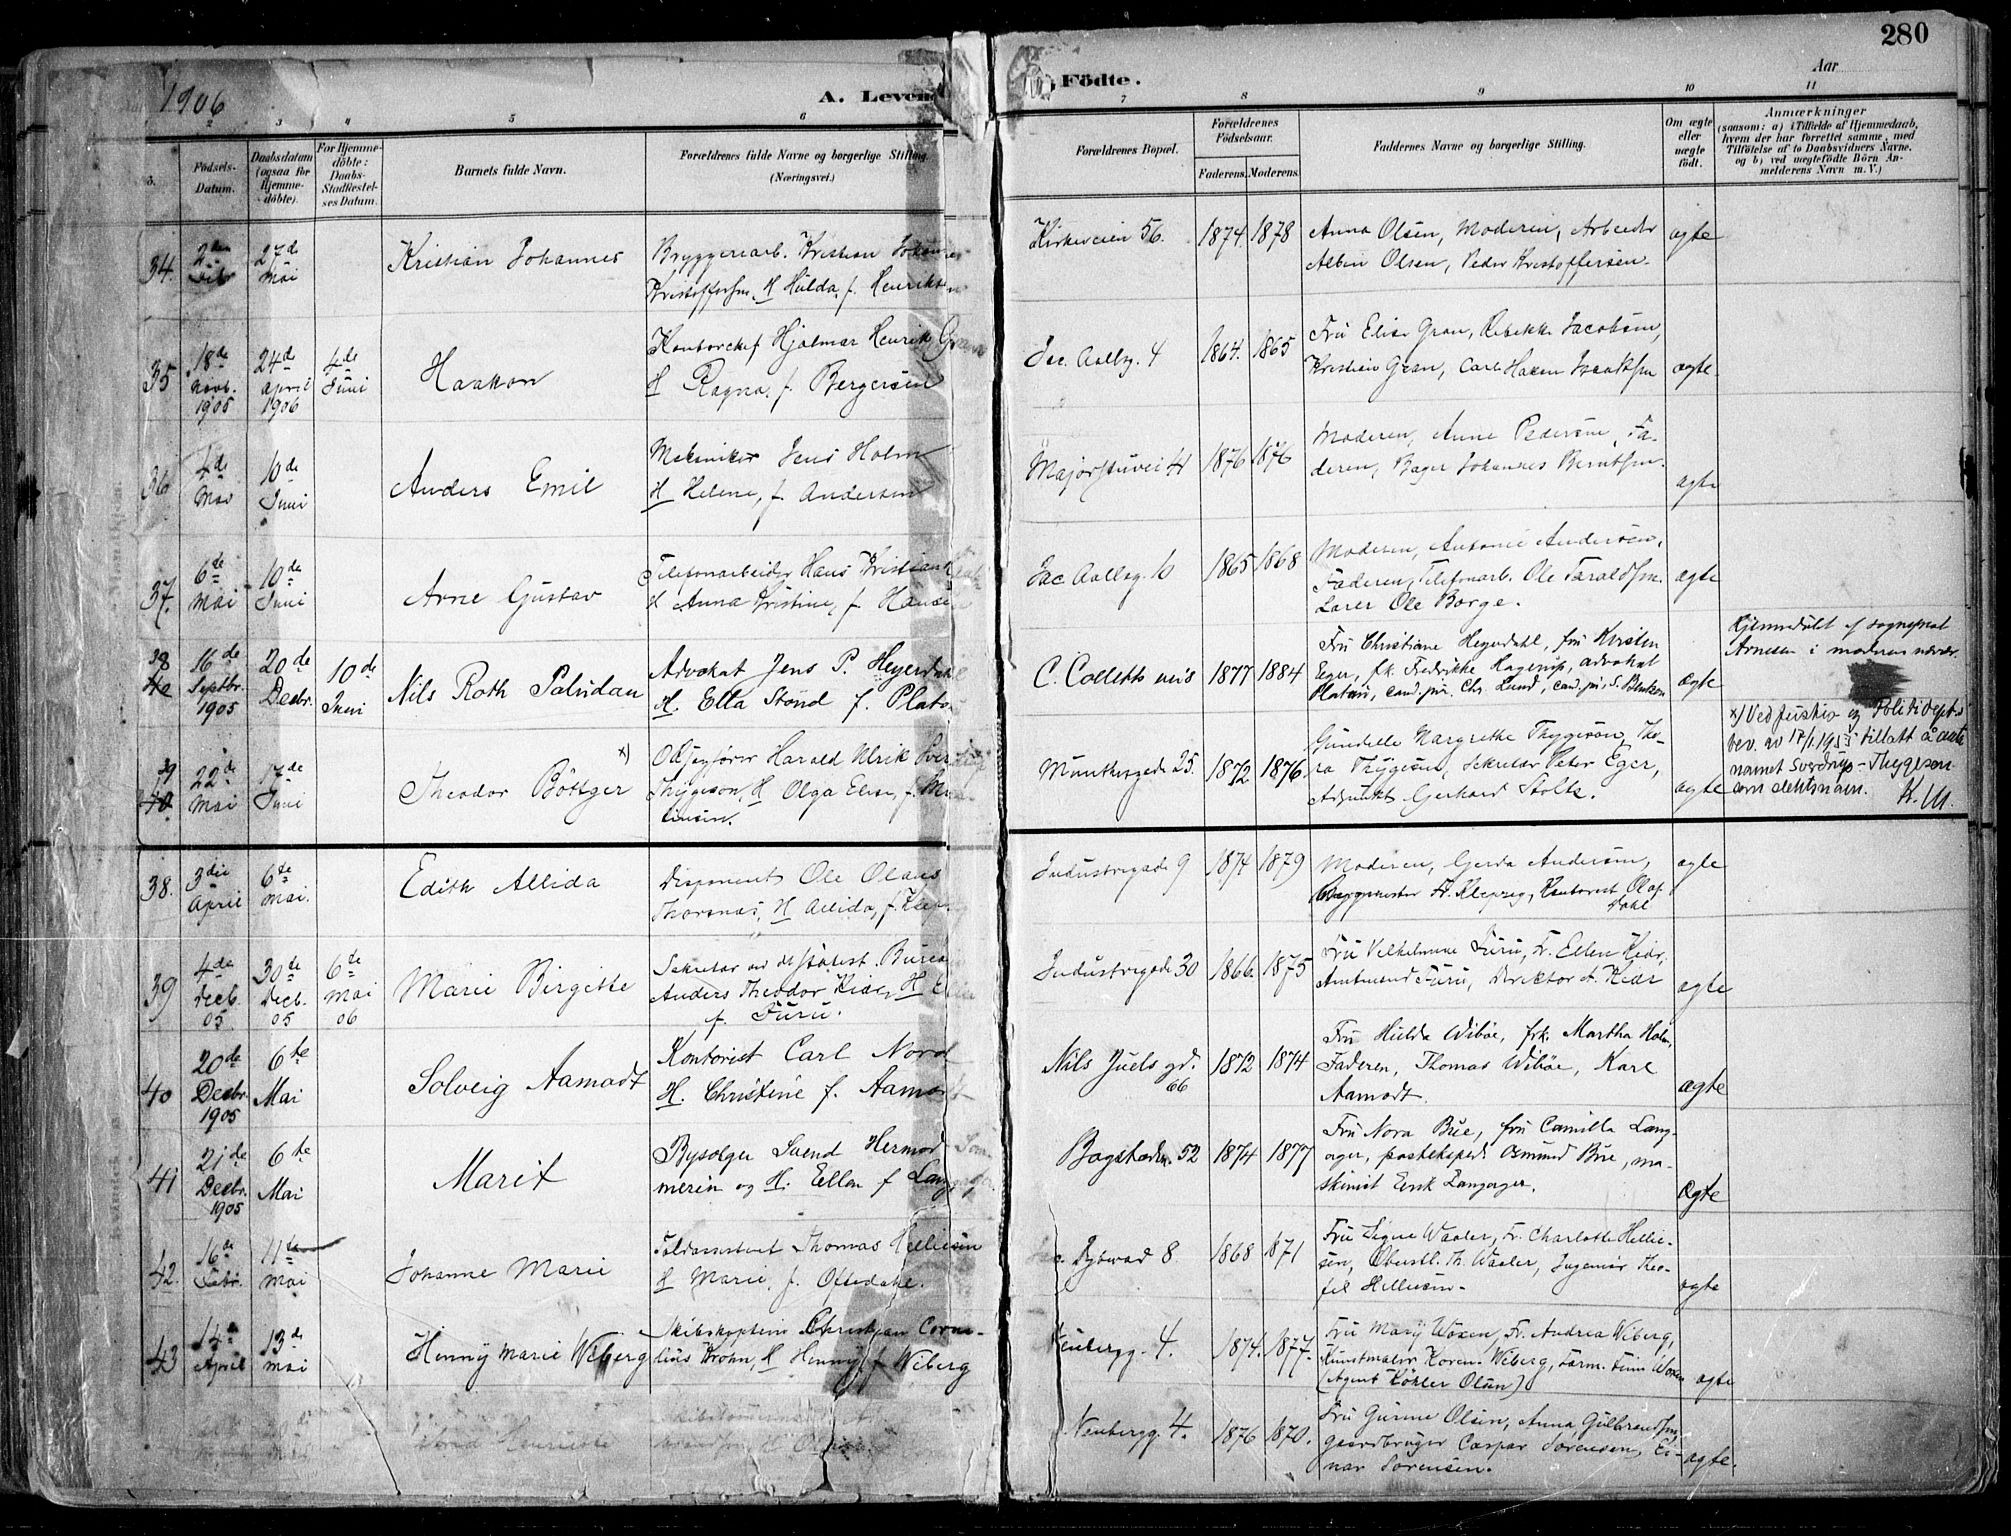 280
1906
A. Levend
Födte.
Aar
2 3 4 5 6
7 8 9 10 11
Födsels-
Datum.
Daabsdatum
(ogsaa for
Hjemme-
döbte).
For Hjemme-
döbte:
Daabs-
Stadfæstel-
ses Datum.
Barnets fulde Navn.
Forældrenes fulde Navne og borgerlige Stilling.
(Næringsvei.)
Forældrenes Bopæl.
Forældrenes
Fødselsaar.
Faderens. Moderens.
Faddernes Navne og borgerlige Stilling.
Om ægte
eller
uægte
født.
Anmærkninger
(saasom: a) i Tilfælde af Hjemmedaab,
hvem der har forrettet samme, med
Tilføielse af to Daabsvidners Navne,
og b) ved uægtefødte Børn An-
melderens Navn m. V.)
34.
2den
Febr
27de
Mai
Kristian Johannes
Bryggeriarb. Kristian Johannes
Kristoffersen, H Hulda, f. Henriksen
Kirkeveien 56.
1874. 1878
Anna Olsen, Moderen, Arbeider
Albin Olsen, Peder Kristoffersen.
ægte
35
18de
Novb.
1905
24de
April
1906
4de
Juni
Haakon
Kontorchef Hjalmar Henrik Gran
H Ragna, f. Bergersen
Jac. Aallsg. 4
1864. 1865
Fru Elise Gran, Rebekka Jacobsen,
Kristian Gran, Carl Haken Isaksen
ægte.
36
4de
Mai
10de
Juni
Anders Emil
Mekaniker Jens Holm
H Helene, f. Andersen
Majorstuvei 41
1876 1876
Moderen, Anne Pedersen, Fa-
deren, Bager Johannes Berntsen.
ægte
37.
6de
Mai
10de
Juni
Arne Gustav
Telefonarbeider Hans Kristian
H Anna Kristine, f. Hansen
Jac Aallsg. 10
1865 1868
Moderen, Antonie Andersen,
Faderen, Telefonarb. Ole Taraldsen.
Lærer Ole Borge.
ægte
38
16de
Septbr.
1905
20de
Decbr.
10de
Juni
Nils Roth Paludan
Advokat Jens P. Heyerdahl
H. Ella Stönd f. Platou
C. Colletts vei 8
1877 1884
Fru Christiane Heyerdahl, fru Kirsten
Eger, fk. Fredrikke Hagerup, advokat
Platou, cand. jur. Chr. Lund, cand. jur. S. Bentzen
ægte
Hjemmedøbt af sognepræst
Arnesen i moderens nærv.
39
40.
22de
Mai
17de
Juni
Theodor Böttger x)
Otsagfører Harald Ulrik Sverdrup
Thygeson, H Olga Elise, f. Mar-
tinsen.
Munthesgade 25.
1872. 1876
Gundelle Margrethe Thygeson, Tho-
ra Thygeson, Sekretær Peter Eger,
Adjunkt Gerhard Stoltz.
ægte
x) Ved Justis og Politidept.s
bev. av 17/1.1955 tillatt å anta
navnet Sverdrup-Thygeson
som slektsnavn. K. M.
38.
3die
April
6te
Mai.
Edith Allida
Disponent Ole Olaus
Thorsnæs, H Allida, f. Klep
Industrigade 9
1874 1879
Moderen, Gerda Andersen,
Byggmester Fr. Klepzig, Kontorist Olaf
Dahl
ægte
39
4de
Decb.
05
30te
Decb.
05
6te
Mai
06
Marie Birgitte
Sekretær ved det statist. Bureau
Anders Theodor Kiær, H Ella
f. Furu.
Industrigade 30
1866. 1875
Fru Vilhelmine Furu, Fr. Ellen Kiær,
Amtmand Furu, Direktør A. Kiær
ægte
40
20de
Decbr.
1905
6te
Mai
Solveig Aamodt
Kontorist Carl Nord
H. Christine f. Aamodt
Nils Juels gd.
66
1872 1874
Fru Hulda Wiböe, frk. Martha Holm,
Faderen, Thomas Wiböe, Karl
Aamodt.
ægte
41
21de
Decbr.
1905
6te
Mai
Marit
Byselger Svend Hermod Som-
merin og H. Ellen f Langager
Bogstadv. 52
1874 1877
Fru Nora Bue, fru Camilla Lang-
ager, postekspd. Osmund Bue, ma-
skinist Eink Langager.
Ægte
42.
16de
Febr.
11te
Mai
Johanne Marie
Toldassistent Thomas Helliesen
H Marie, f. Oftedahl.
Jac. Dybwad 8.
1868 1871
Fru Signe Waaler, Fr. Charlotte Hellie-
sen, Oberstl. Th. Waaler, Ingeniør Theo-
fil Helliesen.
ægte
43
14de
April
13de
Mai
Henny Marie Wiberg
Skibskaptein Christian Corne-
lius Krohn, H Henny, f Wiberg
Neubergg. 4.
1874. 1877.
Fru Mary Woxen, Fr. Andrea Wiberg,
Kunstmaler Koren-Wiberg, Farm. Finn Woxen
(Agent Köhler Olsen)
ægte
Henriette
Neubergg 4.
1876 1870.
Fru Gunne Olsen, Anna Gulbrandsen,
Gaardbruger Caspar Sørensen, Ei-
nar Sørensen.
ægte.